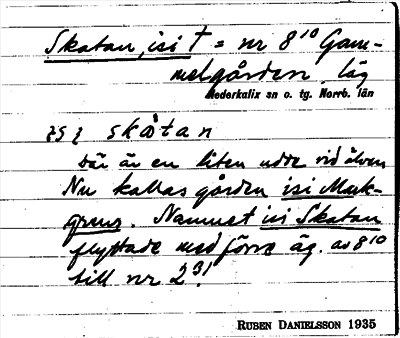 Skatan, isi † = nr 8¹⁰ Gam-
melgården, låg
Nederkalix sn o. tg. Norrb. län
skatan
där är en liten udde vid älven
Nu kallas gården isi Mark-
grens. Namnet isi Skatan
flyttade med förre äg. av 8¹⁰
till nr 2³¹.
RUBEN DANIELSSON 1935